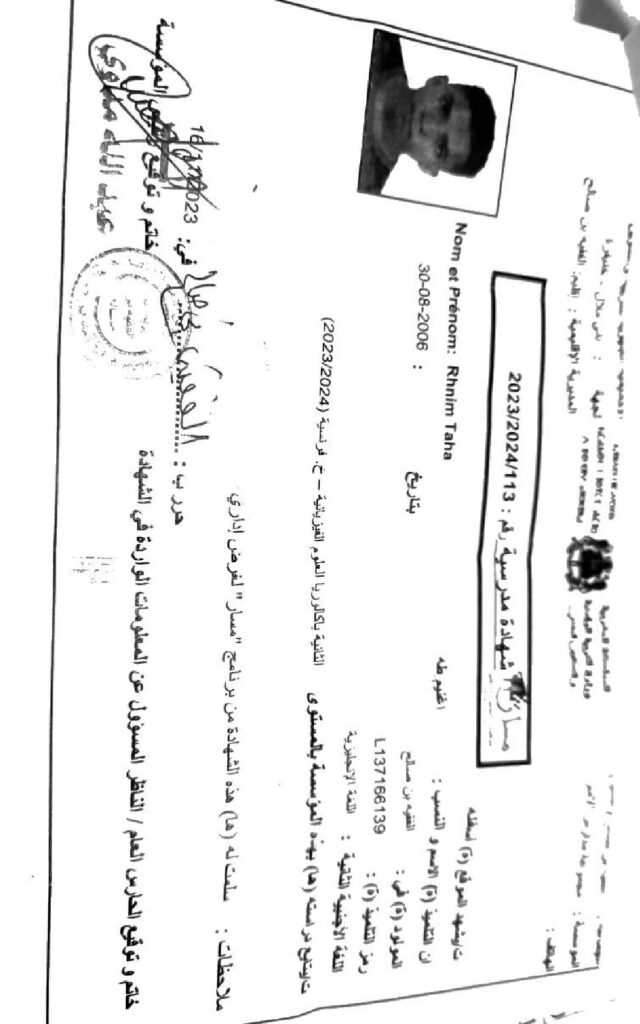 المملكة المغربية
وزارة التربية الوطنية
المديرية الإقليمية : إقليم: الفقيه بن صالح
المؤسسة :
الهاتف :
مسار
شهادة مدرسية رقم : 2023/2024/113
ت/يشهد الموقع (ة) أسفله
ان التلميذ (ة) الاسم و النسب : اغنيم طه
Nom et Prénom: Rhnim Taha
المولود (ة) في : الفقيه بن صالح بتاريخ : 30-08-2006
رمز التلميذ (ة) : L137166139
اللغة الأجنبية الثانية : اللغة الإنجليزية
ت/يتابع دراسته (ها) بهذه المؤسسة بالمستوى الثانية باكالوريا العلوم الفيزيائية – خ. فرنسية (2023/2024)
ملاحظات : سلمت له (ها) هذه الشهادة من برنامج "مسار" لغرض إداري.
حرر ب : في:
خاتم و توقيع الحارس العام / الناظر المسؤول عن المعلومات الواردة في الشهادة
خاتم و توقيع المؤسسة